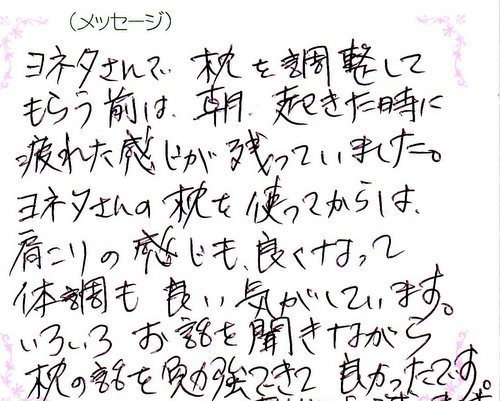 (メッセージ)
ヨネタさんで 枕を調整して
もらう前は、朝、起きた時に
疲れた感じが残っていました。
ヨネタさんの枕を使ってからは、
肩こりの感じも、良くなって
体調も良い気がしています。
いろいろお話を聞きながら
枕の話を勉強できて良かったです。